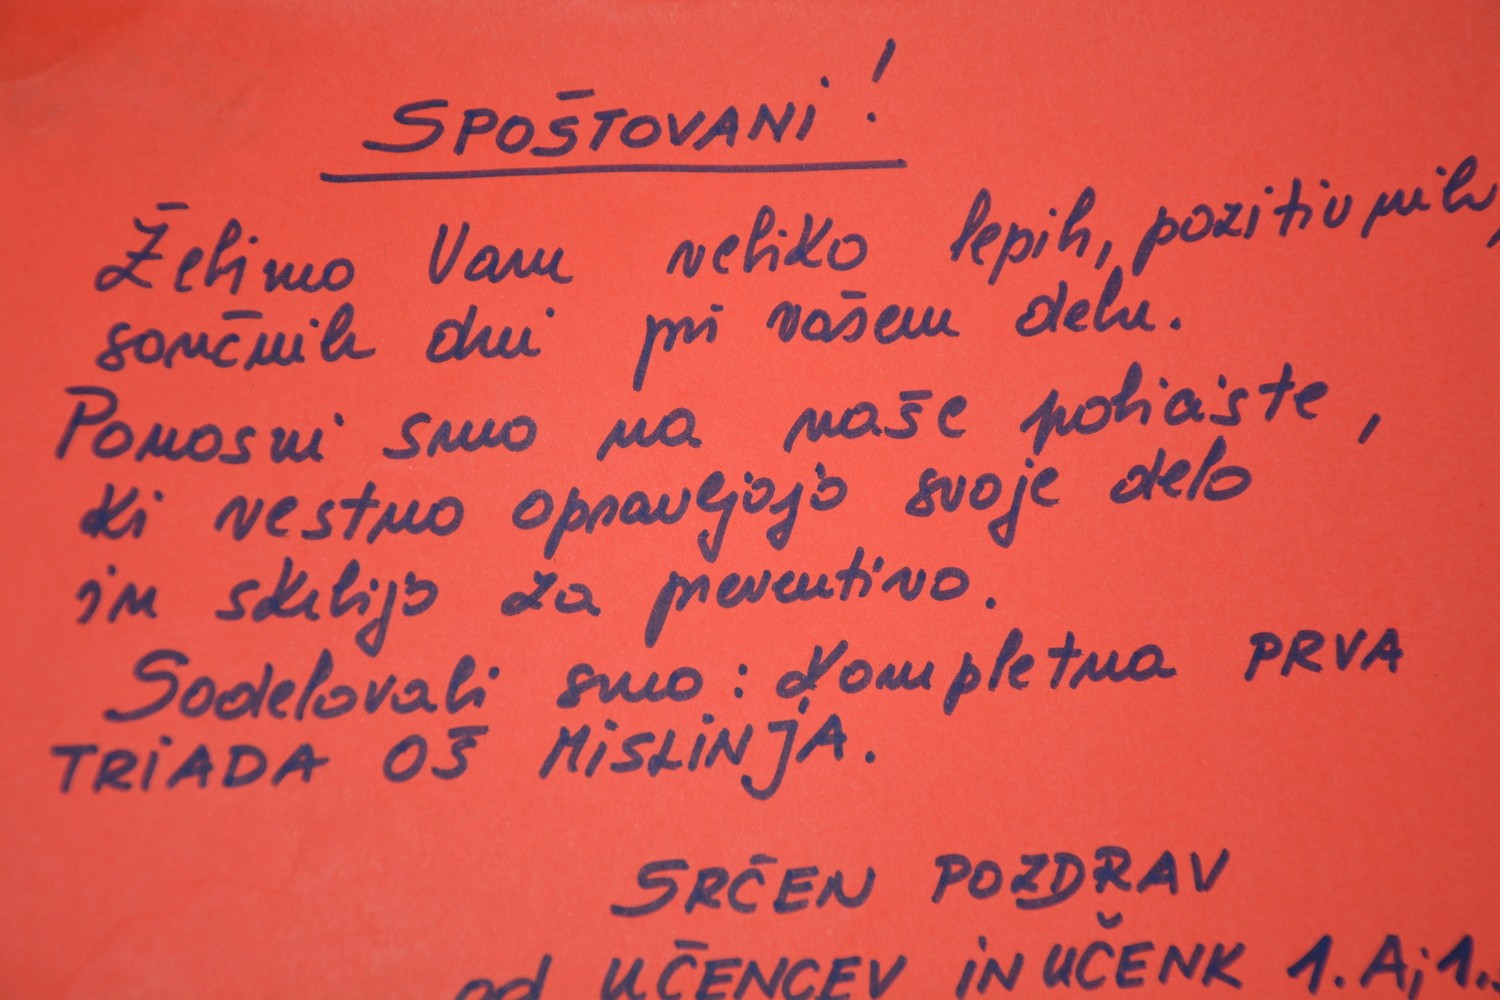 SPOŠTOVANI!
Želimo Vam veliko lepih, pozitivnih,
sončnih dni pri vašem delu.
Ponosni smo na naše policiste,
ki vestno opravljajo svoje delo
in skrbijo za preventivo.
Sodelovali smo: kompletna PRVA
TRIADA OŠ MISLINJA.
SRČEN POZDRAV
od UČENCEV IN UČENK 1. A, 1.